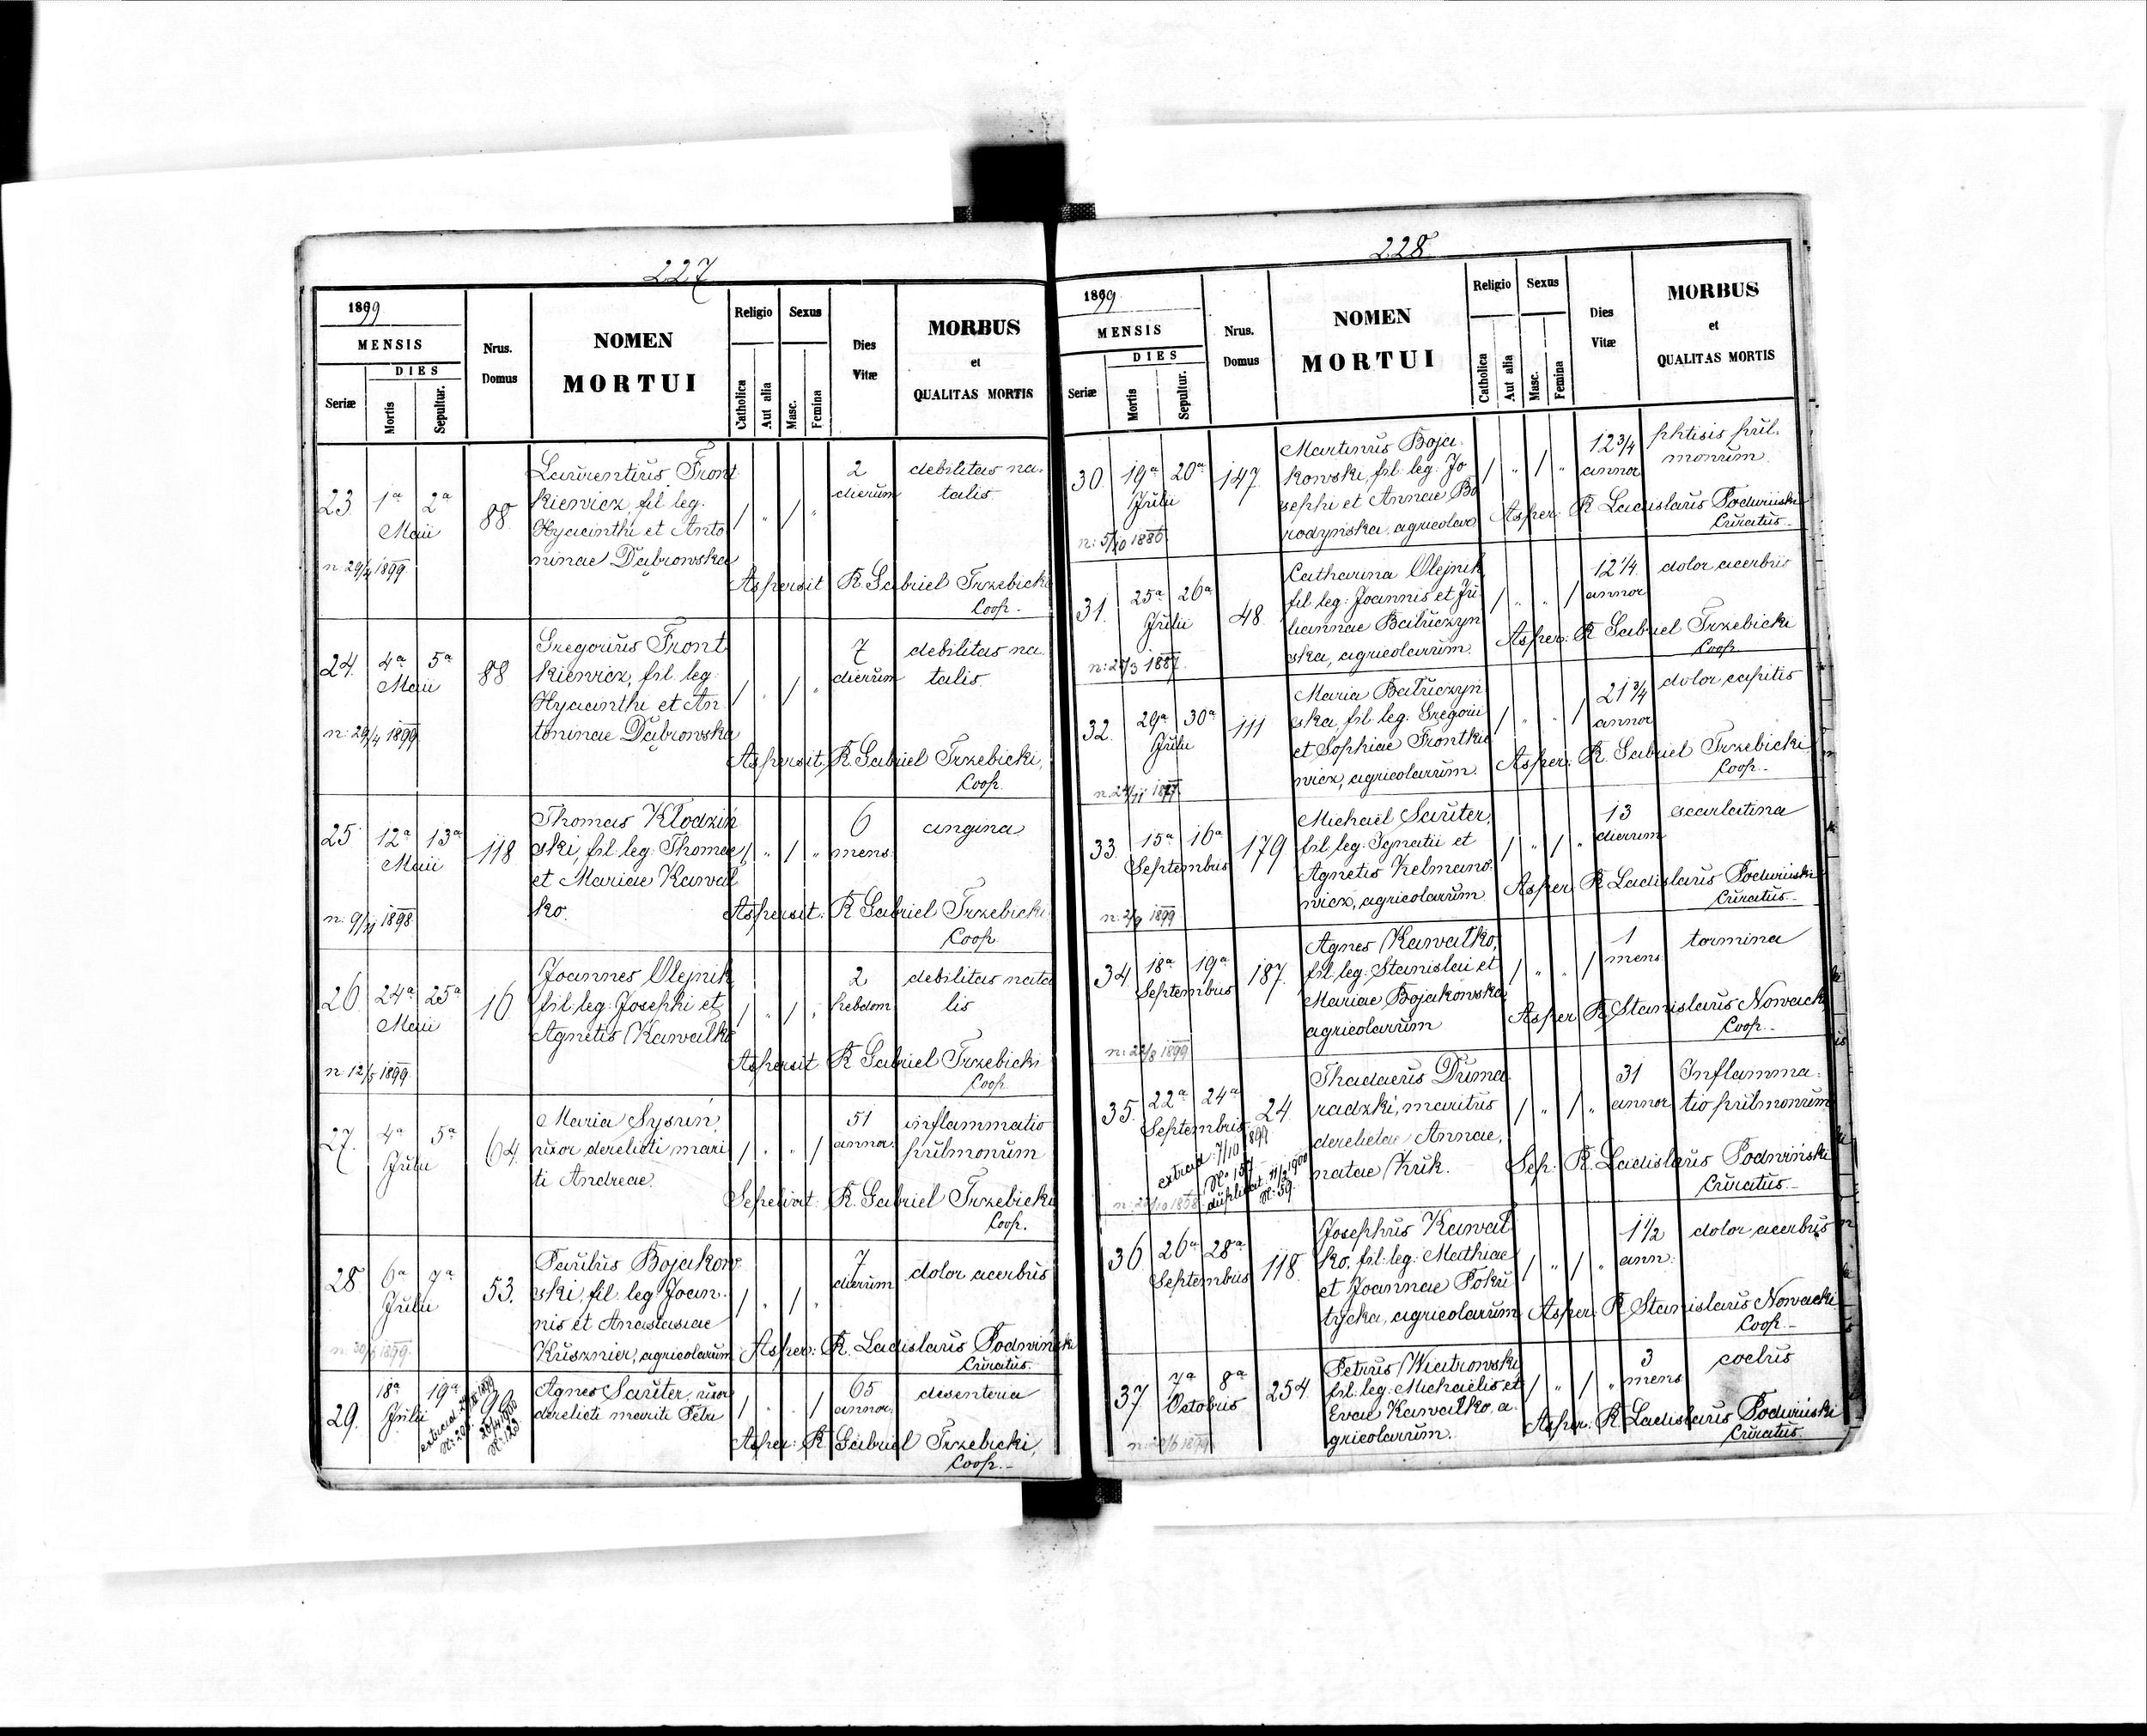 227
1899
MENSIS
DIES
Seriæ
Mortis
Sepultur.
Nrus.
Domus
NOMEN
MORTUI
Religio
Catholica
Aut alia
Sexus
Masc.
Femina
Dies
Vitæ
MORBUS
et
QUALITAS MORTIS
23 1ª 2ª
Maii
n: 29/4 1899
88.
Laurentius Front
kiewicz, fil leg.
Hyacinthi et Anto
ninae Dąbrowska
/ " / "
2
dierum
debilitas na.
talis
Aspersit R. Gabriel Trzebicki
Coop.
24. 4ª 5ª
Maii
n: 29/4 1899
88
Gregorius Front
kiewicz, fil. leg.
Hyacinthi et An
toninae Dąbrowska
/ " / "
7
dierum
debilitas na
talis.
Aspersit R. Gabriel Trzebicki,
Coop.
25 12ª 13ª
Maii
n: 9/11 1898
118
Thomas Kłodziń
ski, fil. leg: Thomae
et Mariae Kawał
ko.
/ " / "
6
mens.
angina
Aspersit: R Gabriel Trzebicki
Coop
26 24ª 25ª
Maii
n: 12/5 1899
16
Joannes Olejnik
fil. leg: Josephi et
Agnetis Kawałko
/ " / "
2
hebdom
debilitas nata
lis
Aspersit R Gabriel Trzebicki
Coop.
27. 4ª 5ª
Julii
64.
Maria Sysun,
uxor derelicti mari
ti Andreae.
/ " " /
51
annor.
inflammatio
pulmonum
Sepelivit: R. Gabriel Trzebicki
Coop.
28 6ª 7ª
Julii
n: 30/6 1899.
53.
Paulus Bojakow
ski, fil. leg Joan.
nis et Anastasiae
Kusznier, agricolarum
/ " / "
7
dierum
dolor acerbus
Asper: R. Ladislaus Podwiński
Curatus.
29. 18ª 19ª
Julii
Agnes Sauter, uxor
derelicti mariti Petri
/ " " /
65
annor.
desenteria
Asper: R Gabriel Trzebicki,
Coop.-
228.
1899
MENSIS
DIES
Seriæ
Mortis
Sepultur.
Nrus.
Domus
NOMEN
MORTUI
Religio
Catholica
Aut alia
Sexus
Masc.
Femina
Dies
Vitæ
MORBUS
et
QUALITAS MORTIS
30. 19ª 20ª
Julii
n: 5/10 1886
147.
Martinus Boja.
kowski, fil: leg: Jo
sephi et Annae Bo
rodynska, agricolar
/ " / "
12 3/4
annor
phtisis pul.
monum.
Asper: R Ladislaus Podwiński
Curatus.-
31. 25ª 26ª
Julii
48.
Catharina Olejnik
fil leg: Joannis et Ju
liannae Bałuczyn
ska, agricolarum.
/ " " /
12 1/4.
annor
dolor acerbus
Asper: R Gabriel Trzebicki
Coop.
32. 29ª 30ª
Julii
n: 24/11 1877.
111
Maria Bałuczyn
ska, fil. leg. Gregorii
et Sophiae Frontkie
wicz, agricolarum.
/ " " /
21 3/4
annor
dolor capitis
Asper: R. Gabriel Trzebicki
Coop.-
33. 15ª 16ª
Septembris
n: 2/9 1899.
179
Michael Sauter,
fil leg: Ignatii et
Agnetis Kelmano.
wicz, agricolarum
/ " / "
13
dierum
scarlatina
Asper R Ladislaus Podwiński
Curatus.-
34. 18ª 19ª
Septembris
n: 22/8 1899
187.
Agnes Kawałko,
fil. leg: Stanislai et
Mariae Bojakowska
agricolarum
/ " " /
1
mens
tormina
Asper R Stanislaus Nowacki
Coop.-
35. 22ª 24ª
Septembris
extrad: 7/10 1899
Nº 157
duplicat: 11/2 1900
Nº: 59.
24.
Thadaeus Duma
radzki, maritus
derelictae Annae,
natae Kuk.
/ " / "
31
annor
Inflamma.
tio pulmonum
Sep: R. Ladislaus Podwiński
Curatus.-
36 26ª 28ª
Septembris
118.
Josephus Kawał
ko, fil: leg: Mathiae
et Joannae Pokry
tycka, agricolarum
/ " / "
1 1/2
ann:
dolor acerbus
Asper. R Stanislaus Nowacki
Coop.-
37 7ª 8ª
Octobris
254.
Petrus Wiatrowski
fil: leg: Michaelis et
Evae Kawałko, a.
gricolarum.
/ " / "
3
mens
coelus
Asper: R. Ladislaus Podwiński
Curatus.